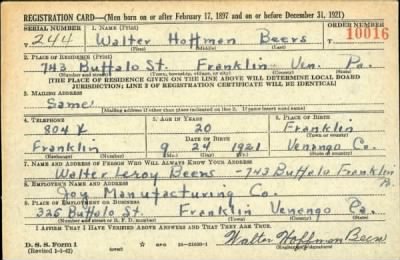 REGISTRATION CARD—(Men born on or after February 17, 1897 and on or before December 31, 1921)
SERIAL NUMBER 1. NAME (Print) ORDER NUMBER
T 244 Walter Hoffman Beers 10016
(First) (Middle) (Last)
2. PLACE OF RESIDENCE (Print)
743 Buffalo St. Franklin Ven. Pa.
(Number and street) (Town, township, village, or city) (County) (State)
[THE PLACE OF RESIDENCE GIVEN ON THE LINE ABOVE WILL DETERMINE LOCAL BOARD
JURISDICTION; LINE 2 OF REGISTRATION CERTIFICATE WILL BE IDENTICAL]
3. MAILING ADDRESS
Same
[Mailing address if other than place indicated on line 2. If same insert word same]
4. TELEPHONE 5. AGE IN YEARS 6. PLACE OF BIRTH
804 20 Franklin
DATE OF BIRTH (Town or county)
Franklin 9 24 1921 Venango Co.
(Exchange) (Number) (Mo.) (Day) (Yr.) (State or country)
7. NAME AND ADDRESS OF PERSON WHO WILL ALWAYS KNOW YOUR ADDRESS
Walter Leroy Beers - 743 Buffalo Franklin Pa.
8. EMPLOYER'S NAME AND ADDRESS
Joy Manufacturing Co.
9. PLACE OF EMPLOYMENT OR BUSINESS
325 Buffalo St. Franklin Venango Pa.
(Number and street or R. F. D. number) (Town) (County) (State)
I AFFIRM THAT I HAVE VERIFIED ABOVE ANSWERS AND THAT THEY ARE TRUE.
D. S. S. Form 1 Walter Hoffman Beers
(Revised 1-1-42) GPO 16—21630-1 (Registrant's signature)